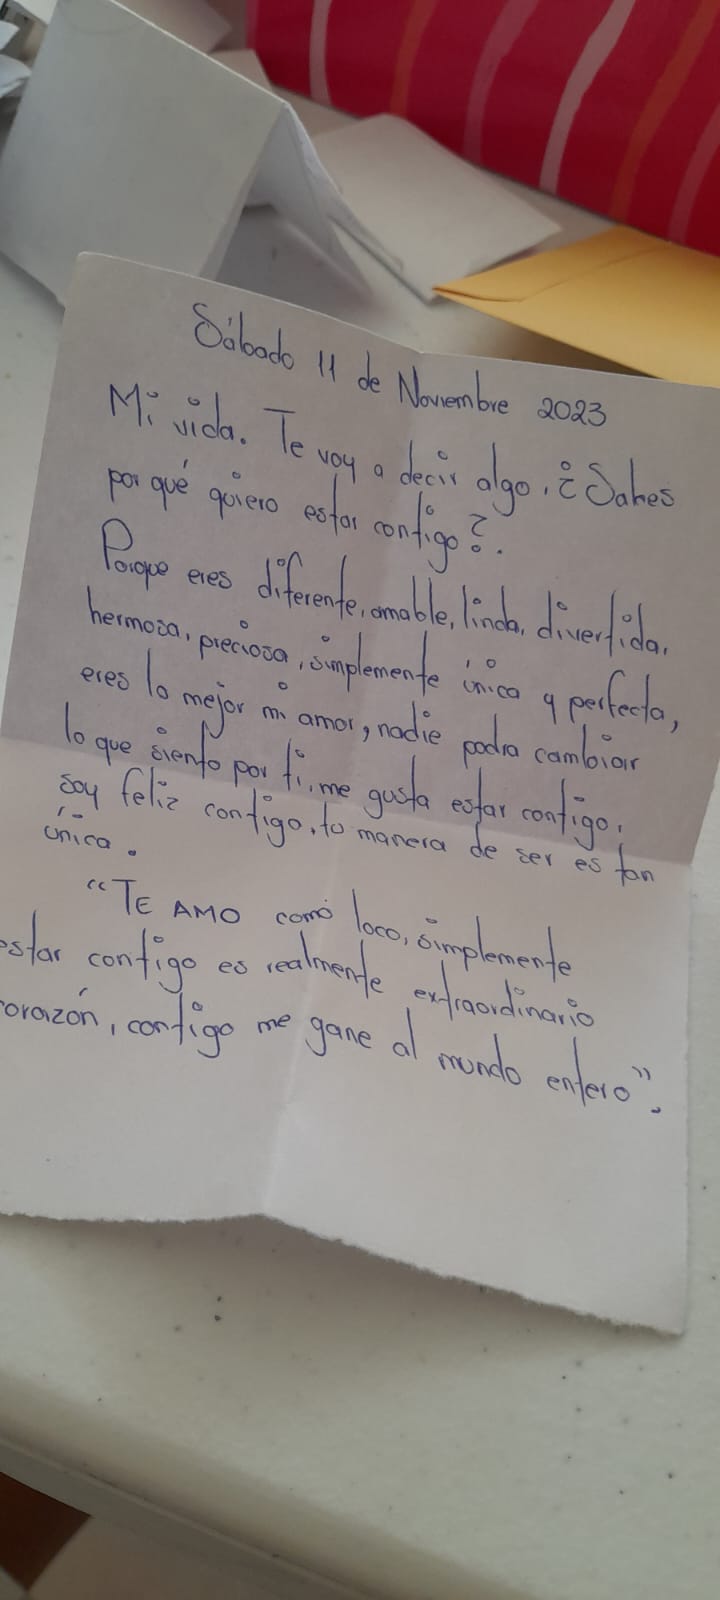 Sábado 11 de Noviembre 2023
Mi vida. Te voy a decir algo, ¿Sabes
por qué quiero estar contigo?.
Porque eres diferente, amable, linda, divertida,
hermosa, preciosa, simplemente única y perfecta,
eres lo mejor mi amor, nadie podra cambiar
lo que siento por ti, me gusta estar contigo,
soy feliz contigo, tu manera de ser es tan
única.
"TE AMO como loco, simplemente
estar contigo es realmente extraordinario
corazón, contigo me gane al mundo entero".